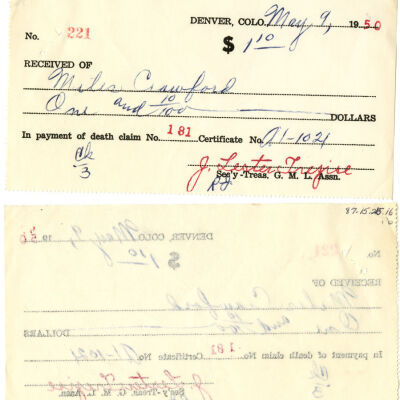 DENVER, COLO. May 9, 1950
No. 221
$ 1 10
RECEIVED OF
Miles Crawford
One and 10/100 DOLLARS
In payment of death claim No. 181 Certificate No. A1-1021
Ck
3
J. Lester Trezise
Sec'y-Treas. G. M. L. Assn.
87.15.25.16
DENVER, COLO. May 9, 1950
No. 221
$ 1 10
RECEIVED OF
Miles Crawford
One and 10/100
DOLLARS
In payment of death claim No. 181 Certificate No. A1-1021
Ck
3
J. Lester Trezise
Sec'y-Treas. G. M. L. Assn.